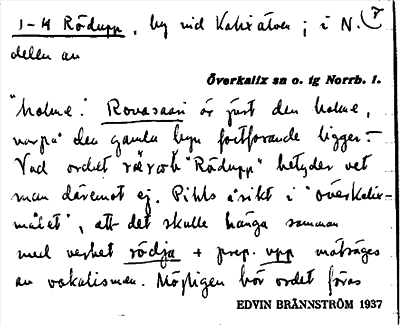 1-4 Rödupp, by vid Kalixälven; i N. 7
delen av
Överkalix sn o. tg Norrb. l.
"holme". Rovasaari är just den holme,
varpå den gamla byn fortfarande ligger. –
Vad ordet "Rödupp" betyder vet
man däremot ej. Pihls åsikt i "överkalix-
målet", att det skulle hänga samman
med verbet rödja + prep. upp motsäges
av vokalismen. Möjligen bör ordet föras
EDVIN BRÄNNSTRÖM 1937